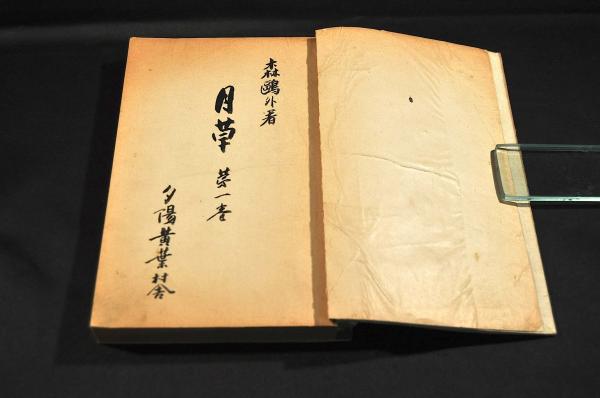 森鷗外著
月草 第一巻
夕陽黄葉村舎